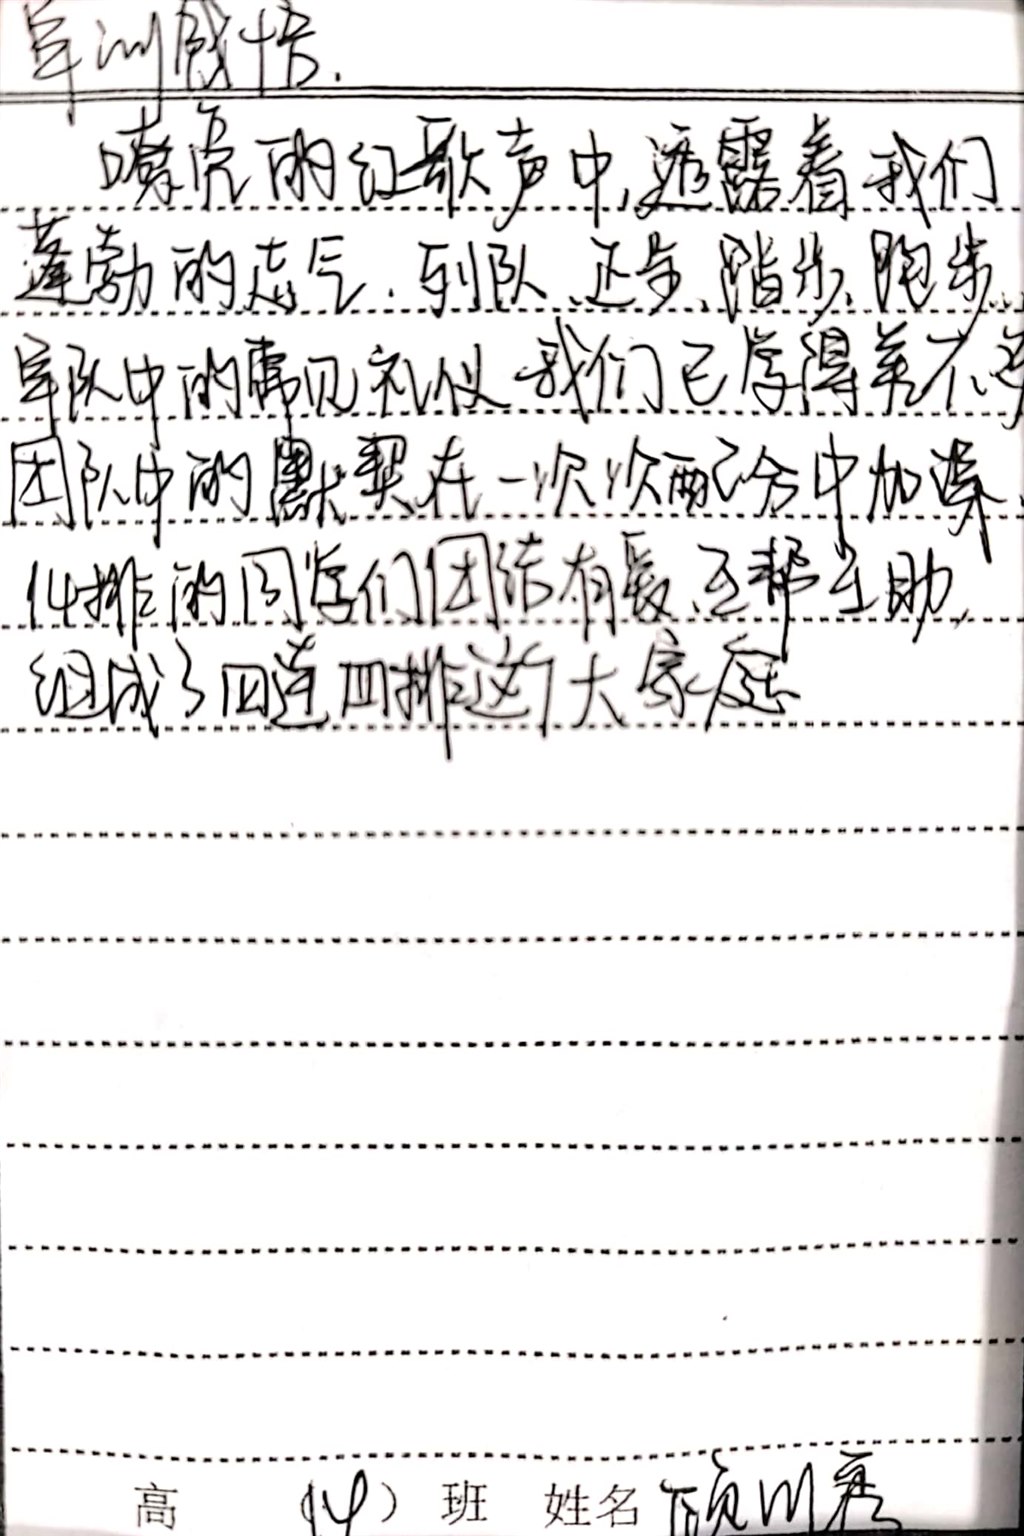 军训感悟.
嘹亮的红歌声中,透露着我们
蓬勃的志气.列队、正步、踏步、跑步、
军队中的常见礼仪我们已学得差不多
团队中的默契在一次次配合中加深.
14排的同学们团结有爱、互帮互助,
组成了四连四排这个大家庭
高 (14) 班 姓名 顾川